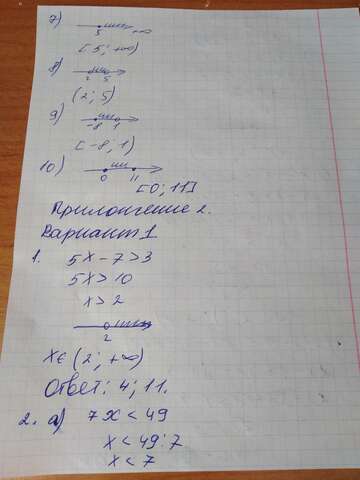 7)
5 +∞
[5; +∞)
8)
2 5
(2; 5)
9)
-8 1
[-8; 1)
10)
0 11
[0; 11]
Приложение 2.
Вариант 1
1. 5x - 7 > 3
5x > 10
x > 2
2
x ∈ (2; +∞)
Ответ: 4; 11.
2. а) 7x < 49
x < 49:7
x < 7